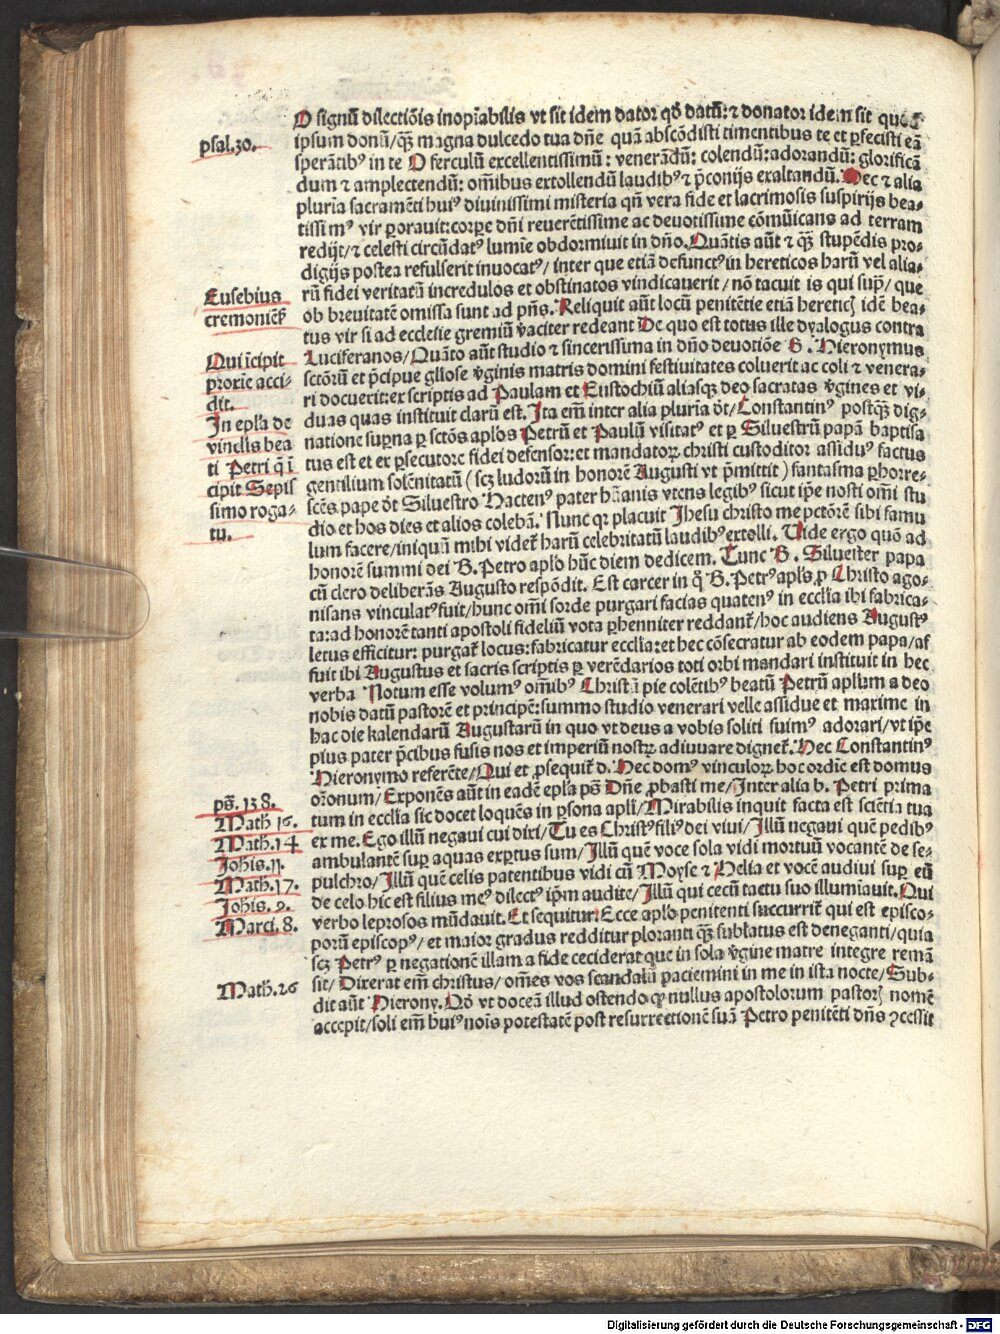 O signū dilectiōis inopīabilis vt sit idem dator qd̄ datū: ⁊ donator idem sit quod
psal.30.
ipsum donū/q̄ꝫ magna dulcedo tua dn̄e quā abscōdisti timentibus te et ꝑfecisti eā
sperātibꝰ in te O ferculū excellentissimū: venerādū: colendū: adorandū: glorificā
dum ⁊ amplectendū: om̄ibus extollendū laudibꝰ ⁊ p̄conijs exaltandū. Hec ⁊ alia
pluria sacramēti huiꝰ diuinissimi misteria qn̄ vera fide et lacrimosis suspirijs bea-
tissimꝰ vir ꝑorauit: corꝑe dn̄i reuerētissime ac deuotissime cōmūicans ad terram
redijt/⁊ celesti circūdatꝰ lumīe obdormiuit in dn̄o. Quātis aūt ⁊ q̄ꝫ stupēdis pro-
digijs postea refulserit inuocatꝰ/ inter que etiā defunctꝰ in hereticos harū vel alia-
Eusebius
cremoniēs̄
rū fidei veritatū incredulos et obstinatos vindicauerit/ nō tacuit is qui sup̄/ que
ob breuitatē omissa sunt ad pn̄s. Reliquit aūt locū penitētie etiā hereticꝭ idē bea-
tus vir si ad ecclesie gremiū v̄aciter redeant De quo est totus ille dyalogus contra
Qui īcipit
proxie acci-
dit.
In epl̄a de
vinclīs bea
ti Petri q̄ ī
cipit Sepis
simo roga-
tu.
Luciferanos/Quāto aūt studio ⁊ sincerissima in dn̄o deuotiōe B. Hieronymus
sctōrū et p̄cipue gl̄iose v̄ginis matris domini festiuitates coluerit ac coli ⁊ venera-
ri docuerit: ex scriptis ad Paulam et Eustochiū aliasqꝫ deo sacratas v̄gines et vi-
duas quas instituit clarū est. Ita em̄ inter alia pluria dt̄/Constantinꝰ postq̄ꝫ dig-
natione suꝑna ꝑ sctōs aplōs Petrū et Paulū visitatꝰ et ꝑ Siluestrū papā baptisa
tus est et ex ꝑsecutore fidei defensor: et mandatoꝝ christi custoditor assiduꝰ factus
gentilium solēnitatū (scꝫ ludorū in honorē Augusti vt p̄mittit) fantasma ꝑhorre-
scēs pape dt̄ Siluestro Hactenꝰ pater hūanis vtens legibꝰ sicut ip̄e nosti om̄i stu
dio et hos dies et alios colebā. Nunc qꝛ placuit Jhesu christo me pctōrē sibi famu
lum facere/iniquū mihi videt̄ harū celebritatū laudibꝰ extolli. Vide ergo quō ad
honorē summi dei B. Petro aplo hūc diem dedicem. Tunc B. Siluester papa
cū clero deliberās Augusto respōdit. Est carcer in q̊ B. Petrꝰ apl̄s ꝓ Christo ago-
nisans vinculatꝰ fuit/hunc om̄i sorde purgari facias quatenꝰ in ecclīa ibi fabrica-
ta: ad honorē tanti apostoli fideliū vota ꝑhenniter reddant̄/hoc audiens Augustꝰ
letus efficitur: purgat̄ locus: fabricatur ecclīa: et hec cōsecratur ab eodem papa/af
fuit ibi Augustus et sacris scriptis ꝑ verēdarios toti orbi mandari instituit in hec
verba Notum esse volumꝰ om̄ibꝰ Christū pie colētibꝰ beatū Petrū aplum a deo
nobis datū pastorē et principē: summo studio venerari velle assidue et maxime in
hac die kalendarū Augustarū in quo vt deus a vobis soliti fuimꝰ adorari/vt ip̄e
pius pater p̄cibus fusis nos et imperiū nostꝝ adiuuare dignet̄. Hec Constantinꝰ
Hieronymo referēte/Qui et ꝓsequit̄ d. Hec domꝰ vinculoꝝ hoc ordīe est domus
or̄onum/ Exponēs aūt in eadē epl̄a ps̄ Dn̄e ꝓbasti me/Inter alia b. Petri prima
ps̄. 138.
Math 16.
Math.14
Johis. 11.
Math.17.
Johis. 9.
Marci. 8.
tum in ecclīa sic docet loquēs in ꝑsona apl̄i/Mirabilis inquit facta est sciētia tua
ex me. Ego illū negaui cui dixi/Tu es Christꝰ filiꝰ dei viui/ Illū negaui quē pedibꝰ
ambulantē suꝑ aquas exꝑtus sum/Illū quē voce sola vidi mortuū vocantē de se-
pulchro/Illū quē celis patentibus vidi cū Moyse ⁊ Helia et vocē audiui suꝑ eū
de celo hic est filius meꝰ dilectꝰ ip̄m audite/Illū qui cecū tactu suo illumīauit. Qui
verbo leprosos mūdauit. Et sequitur. Ecce aplo penitenti succurrit̄ qui est episco-
porū episcopꝰ/et maior gradus redditur ploranti q̄ꝫ sublatus est deneganti/quia
scꝫ Petrꝰ ꝑ negationē illam a fide ceciderat que in sola v̄gine matre integre remā
Math.26
sit/ Dixerat em̄ christus/ om̄es vos scandalū paciemini in me in ista nocte/Sub-
dit aūt Hierony. Qd̄ vt doceā illud ostendo qꝙ nullus apostolorum pastorꝭ nomē
accepit/soli em̄ huiꝰ nōis potestatē post resurrectionē suā Petro penitēti dn̄s ꝯcessit
Digitalisierung gefördert durch die Deutsche Forschungsgemeinschaft - DFG